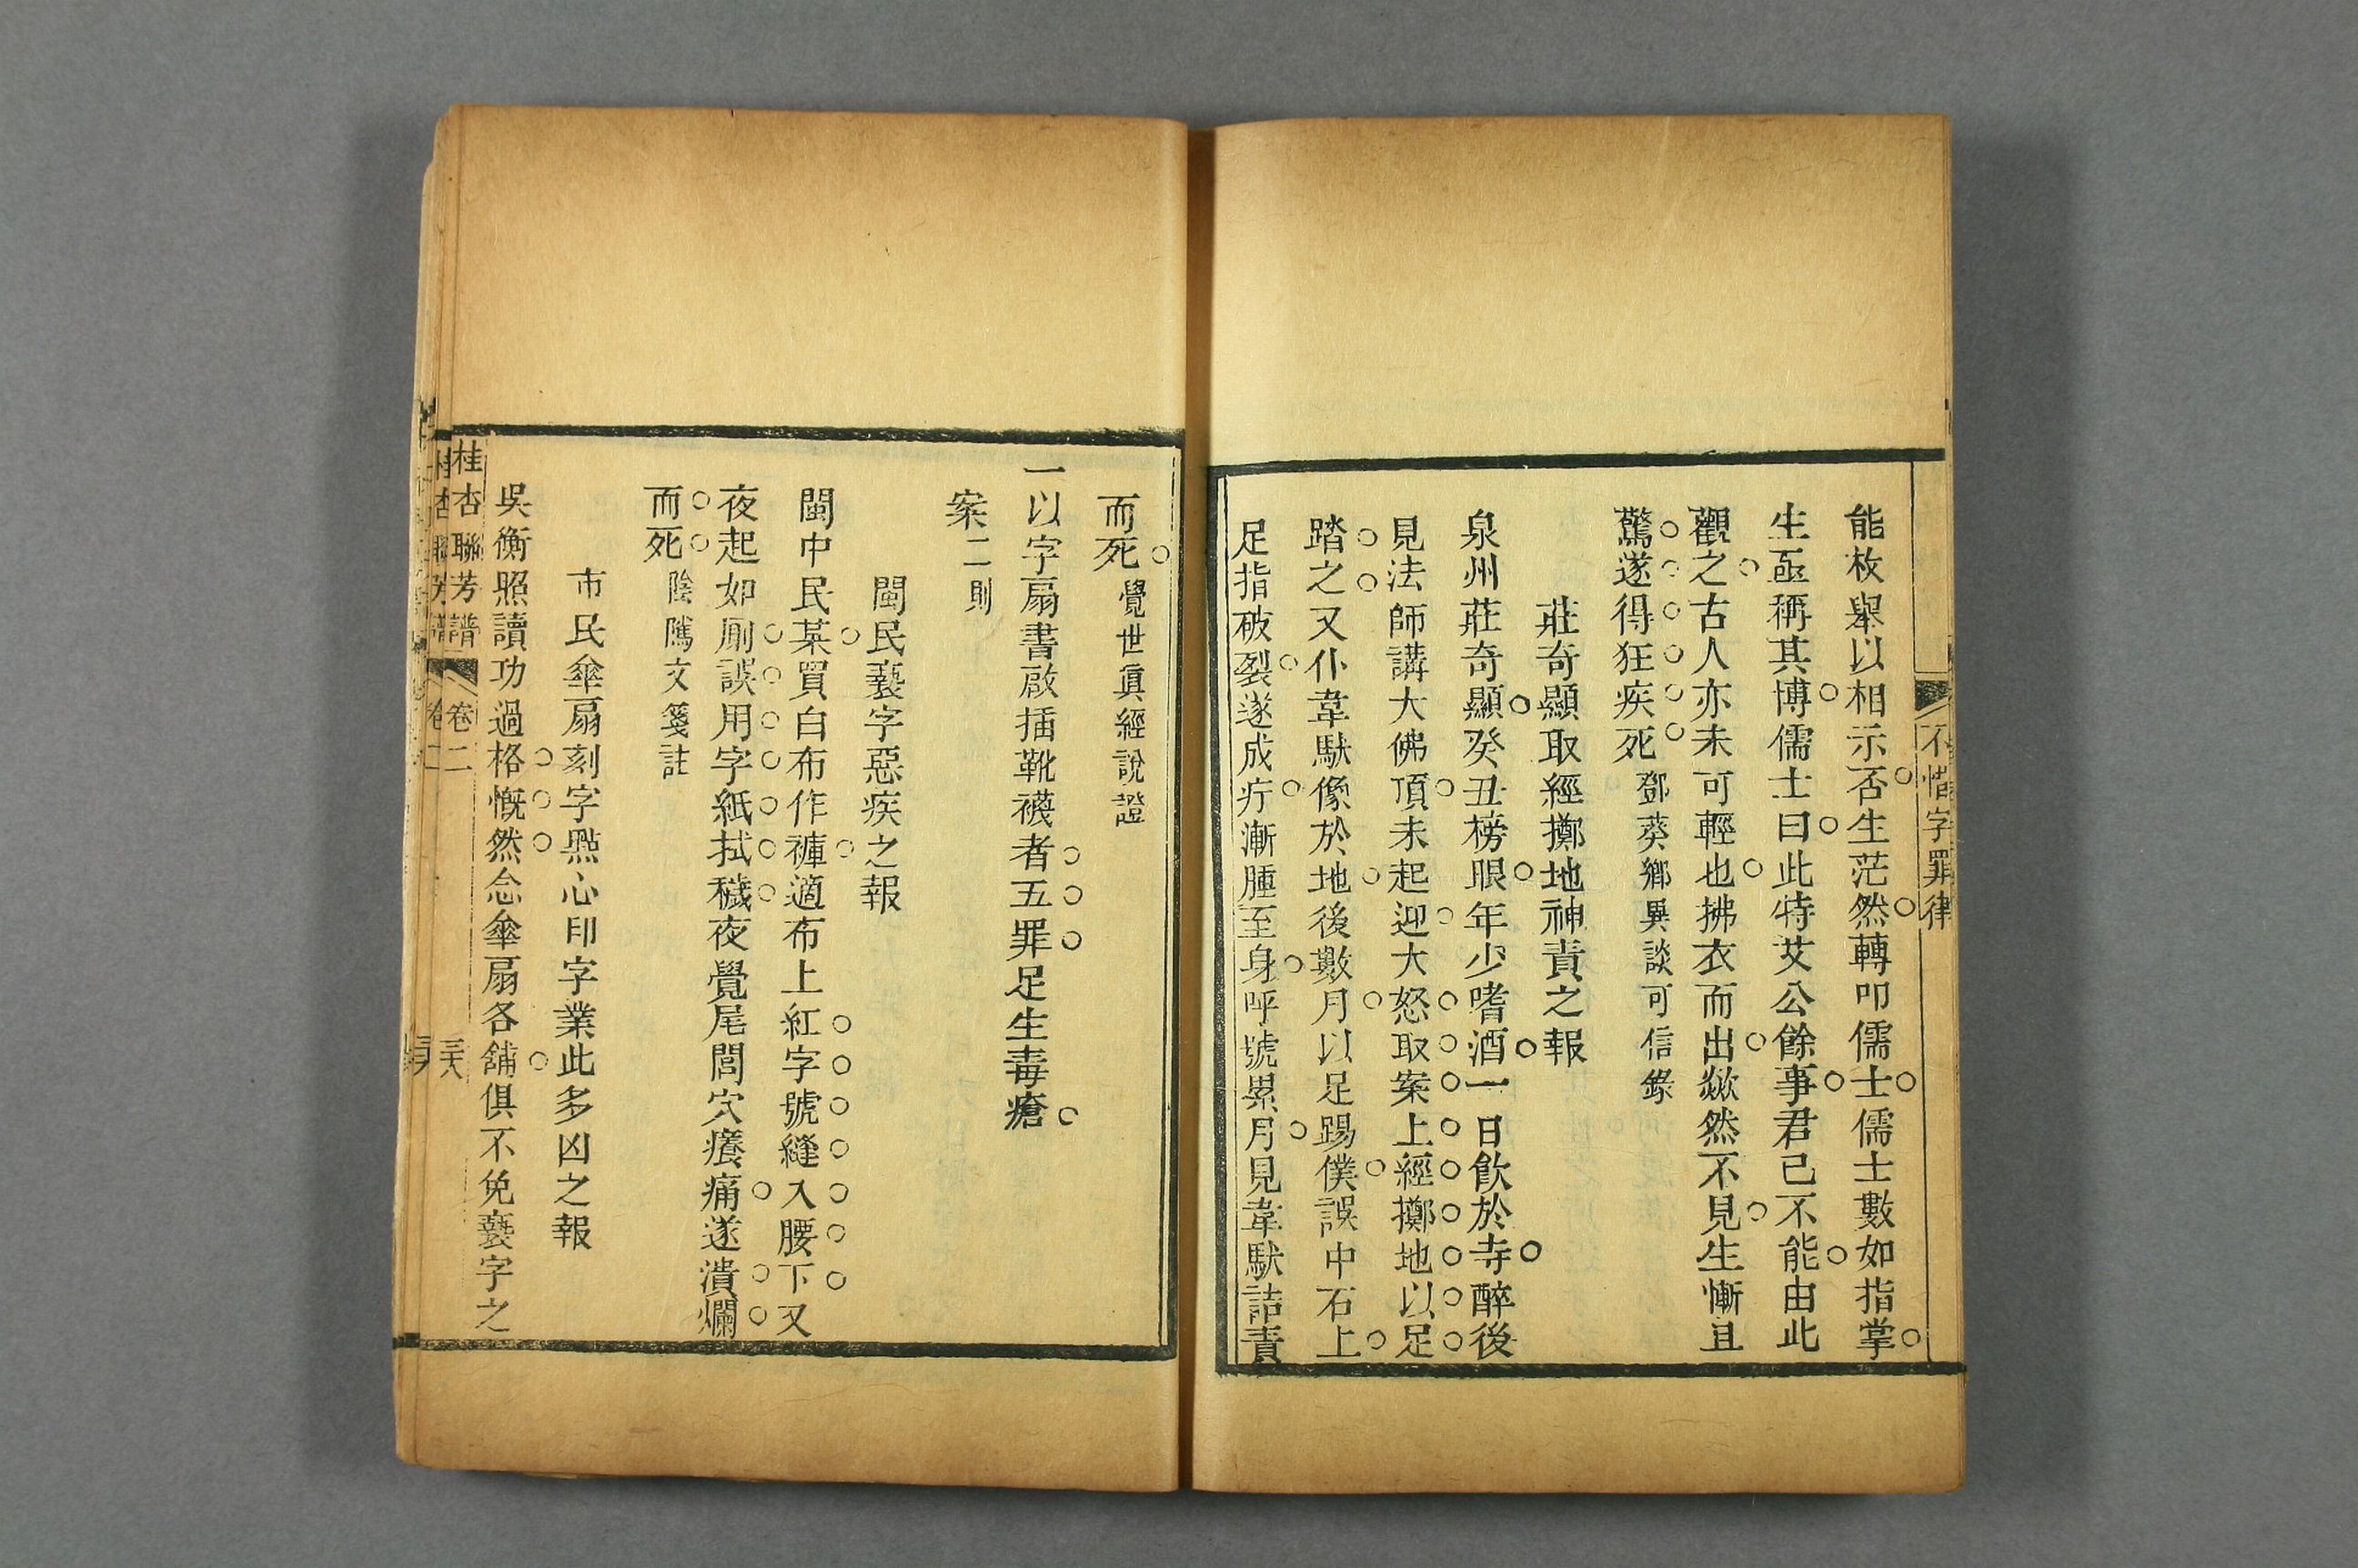 不惜字罪律
能枚舉以相示否生茫然轉叩儒士儒士數如指掌
生亟稱其博儒士曰此特艾公餘事君已不能由此
觀之古人亦未可輕也拂衣而出歘然不見生慚且
驚遂得狂疾死鄧葵鄉異談可信錄
莊奇顯取經擲地神責之報
泉州莊奇顯癸丑榜眼年少嗜酒一日飲於寺醉後
見法師講大佛頂未起迎大怒取案上經擲地以足
踏之又仆韋馱像於地後數月以足踢僕誤中石上
足指破裂遂成疔漸腫至身呼號累月見韋馱詰責
而死覺世眞經說證
一以字扇書啟插靴襪者五罪足生毒瘡
案二則
閩民褻字惡疾之報
閩中民某買白布作褲適布上紅字號縫入腰下又
夜起如厠誤用字紙拭穢夜覺尾閭穴癢痛遂潰爛
而死陰隲文箋註
市民傘扇刻字㸃心印字業此多凶之報
吳衡照讀功過格慨然念傘扇各舖俱不免褻字之
桂杏聯芳譜 卷二 三十八